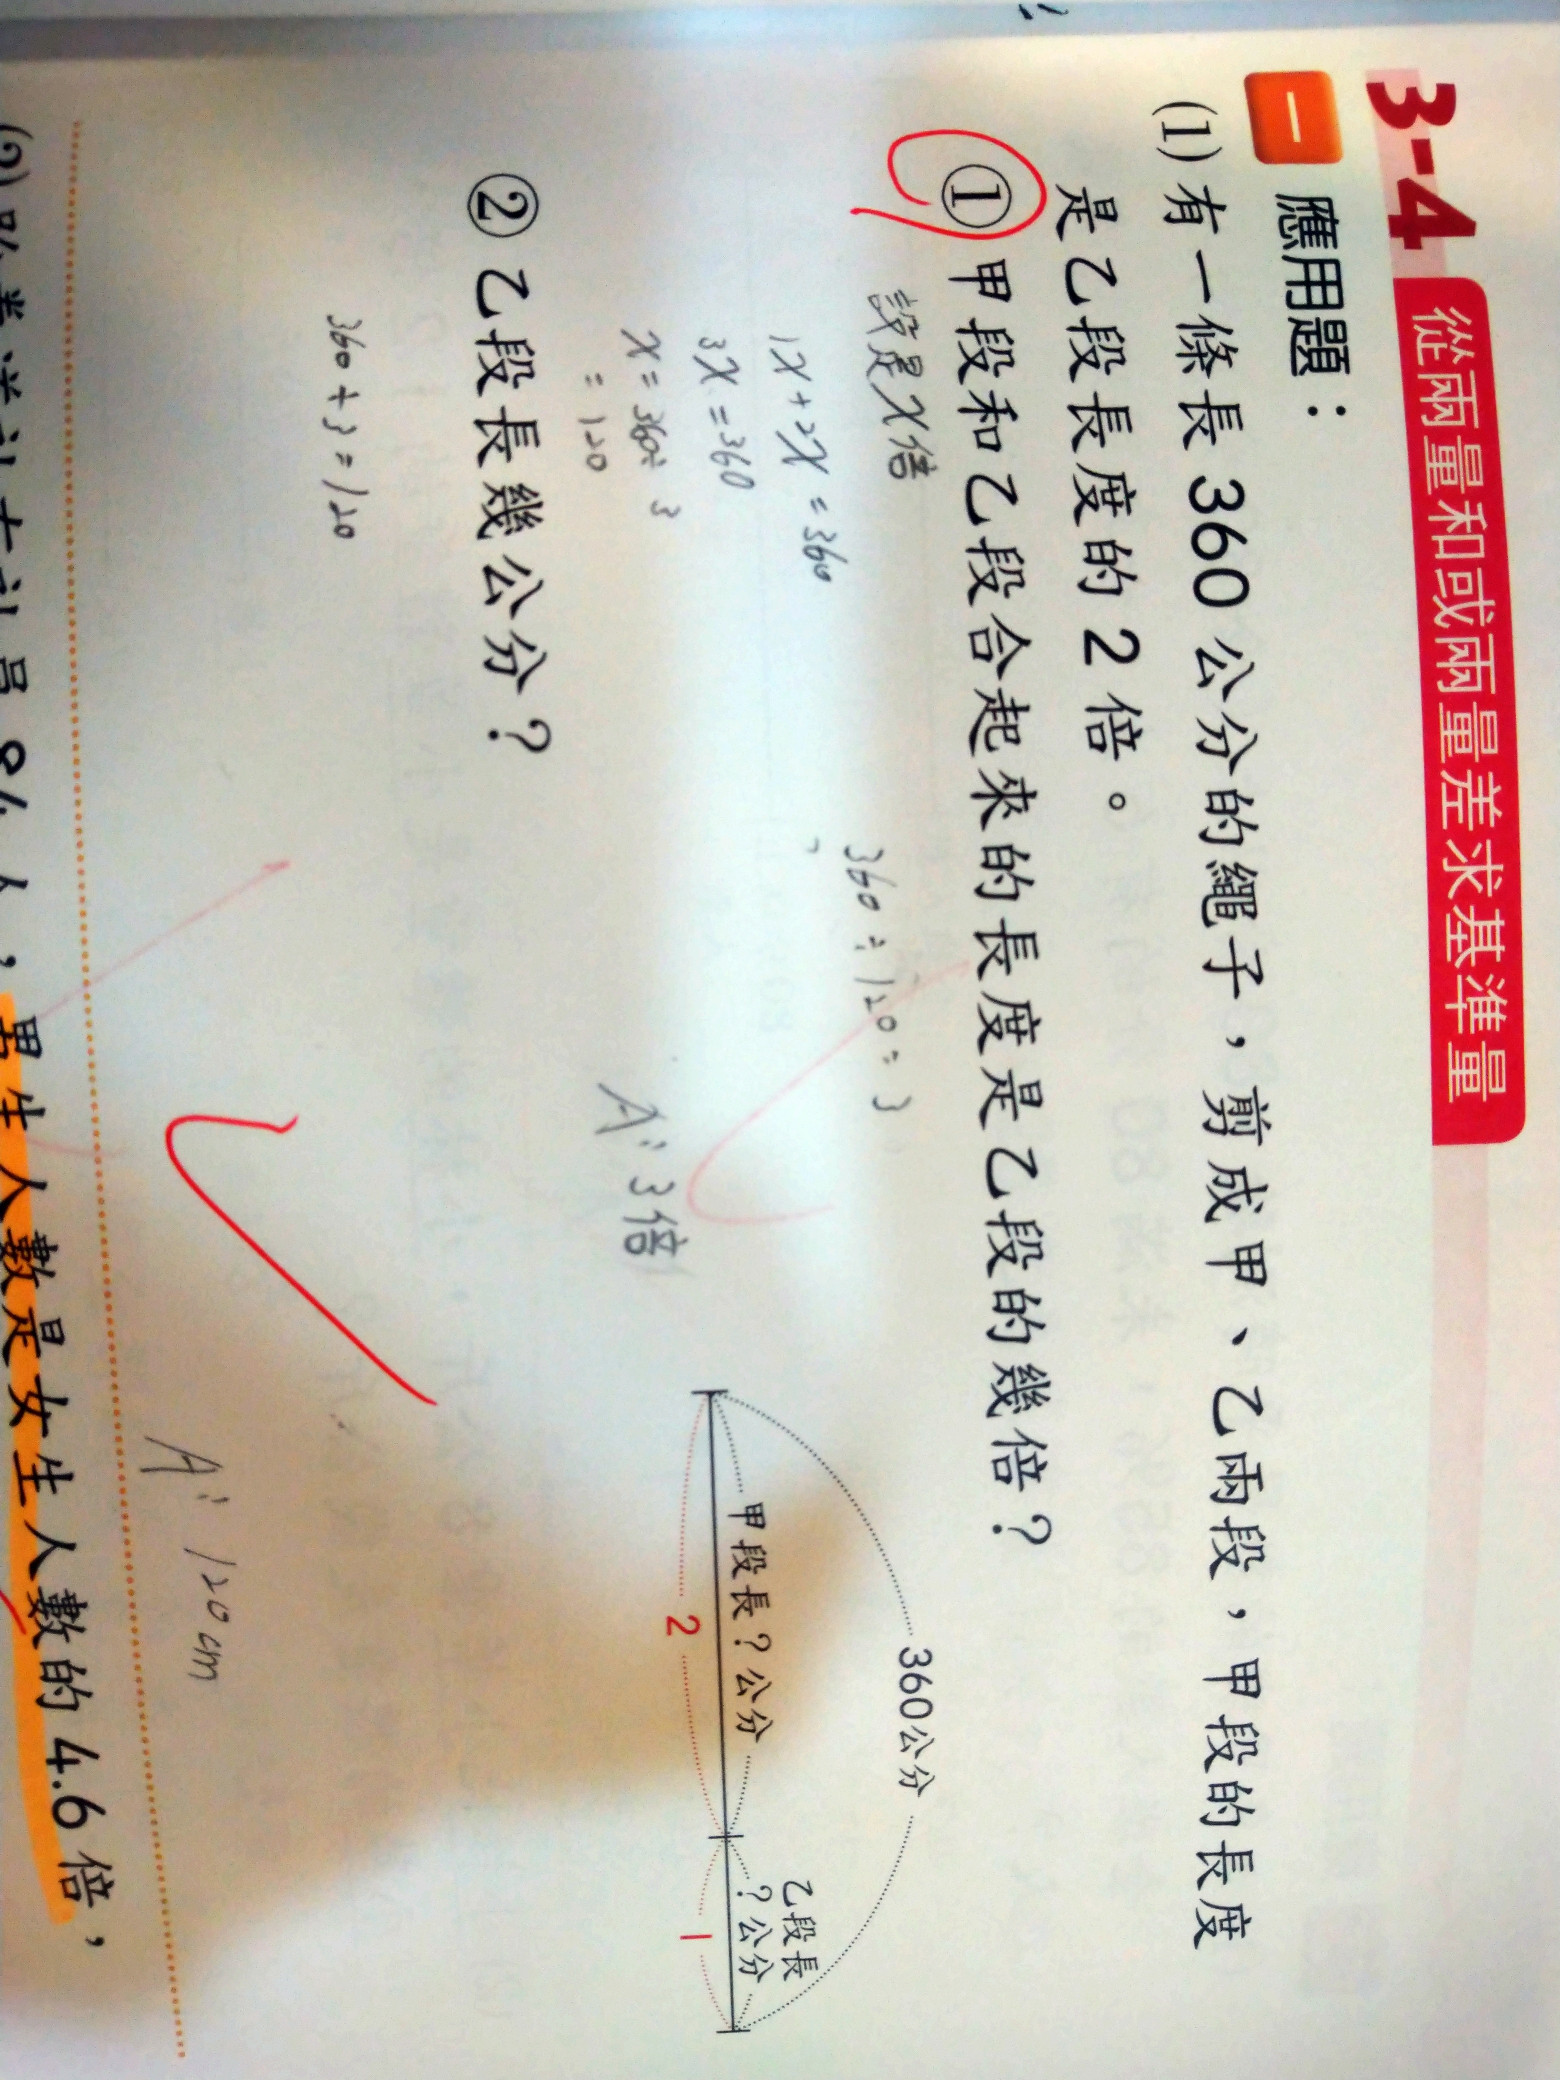 3-4 從兩量和或兩量差求基準量
一 應用題：
(1) 有一條長 360 公分的繩子，剪成甲、乙兩段，甲段的長度
是乙段長度的 2 倍。
① 甲段和乙段合起來的長度是乙段的幾倍？
設是X倍
360÷120=3
1X+2X=360
3X=360
X=360÷3
=120
A:3倍
360公分
甲段長？公分
乙段長
？公分
2
1
② 乙段長幾公分？
360÷3=120
A:120cm
人，男生人數是女生人數的 4.6 倍，